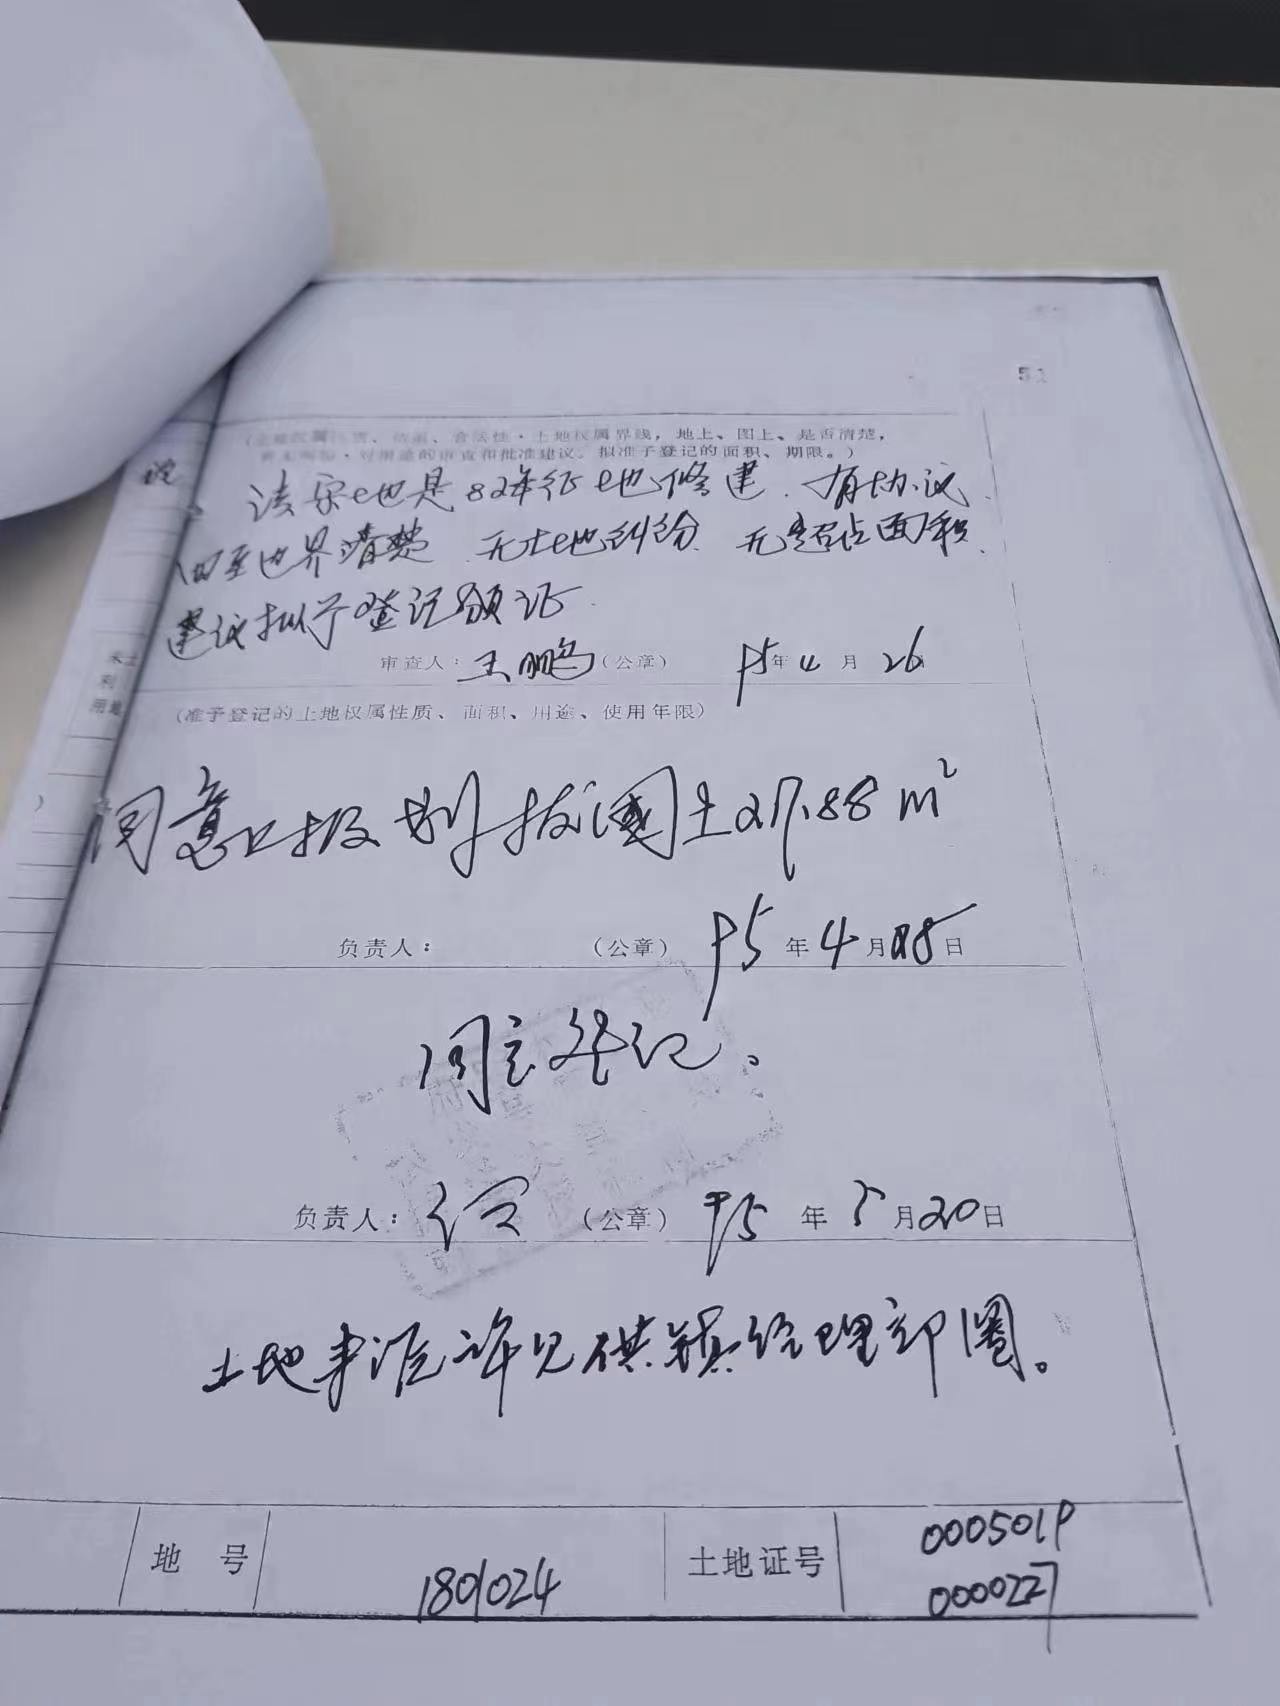 51
土地权属界线,地上、图上、是否清楚,
对用途的审查和批准建议。拟准予登记的面积、期限。)
该宗地是82年征地修建、有协议、
四至边界清楚、无土地纠纷、无超占面积、
建议拟予登记颁证
审查人:王鹏(公章) 95年4月26
(准予登记的土地权属性质、面积、用途、使用年限)
同意上报划拨国土217.88m²
负责人: (公章) 95年4月28日
同意登记。
负责人: (公章) 95年5月20日
土地来源详见供销经理部图。
未
利
用地
地号 1801024 土地证号 0005019
0000227